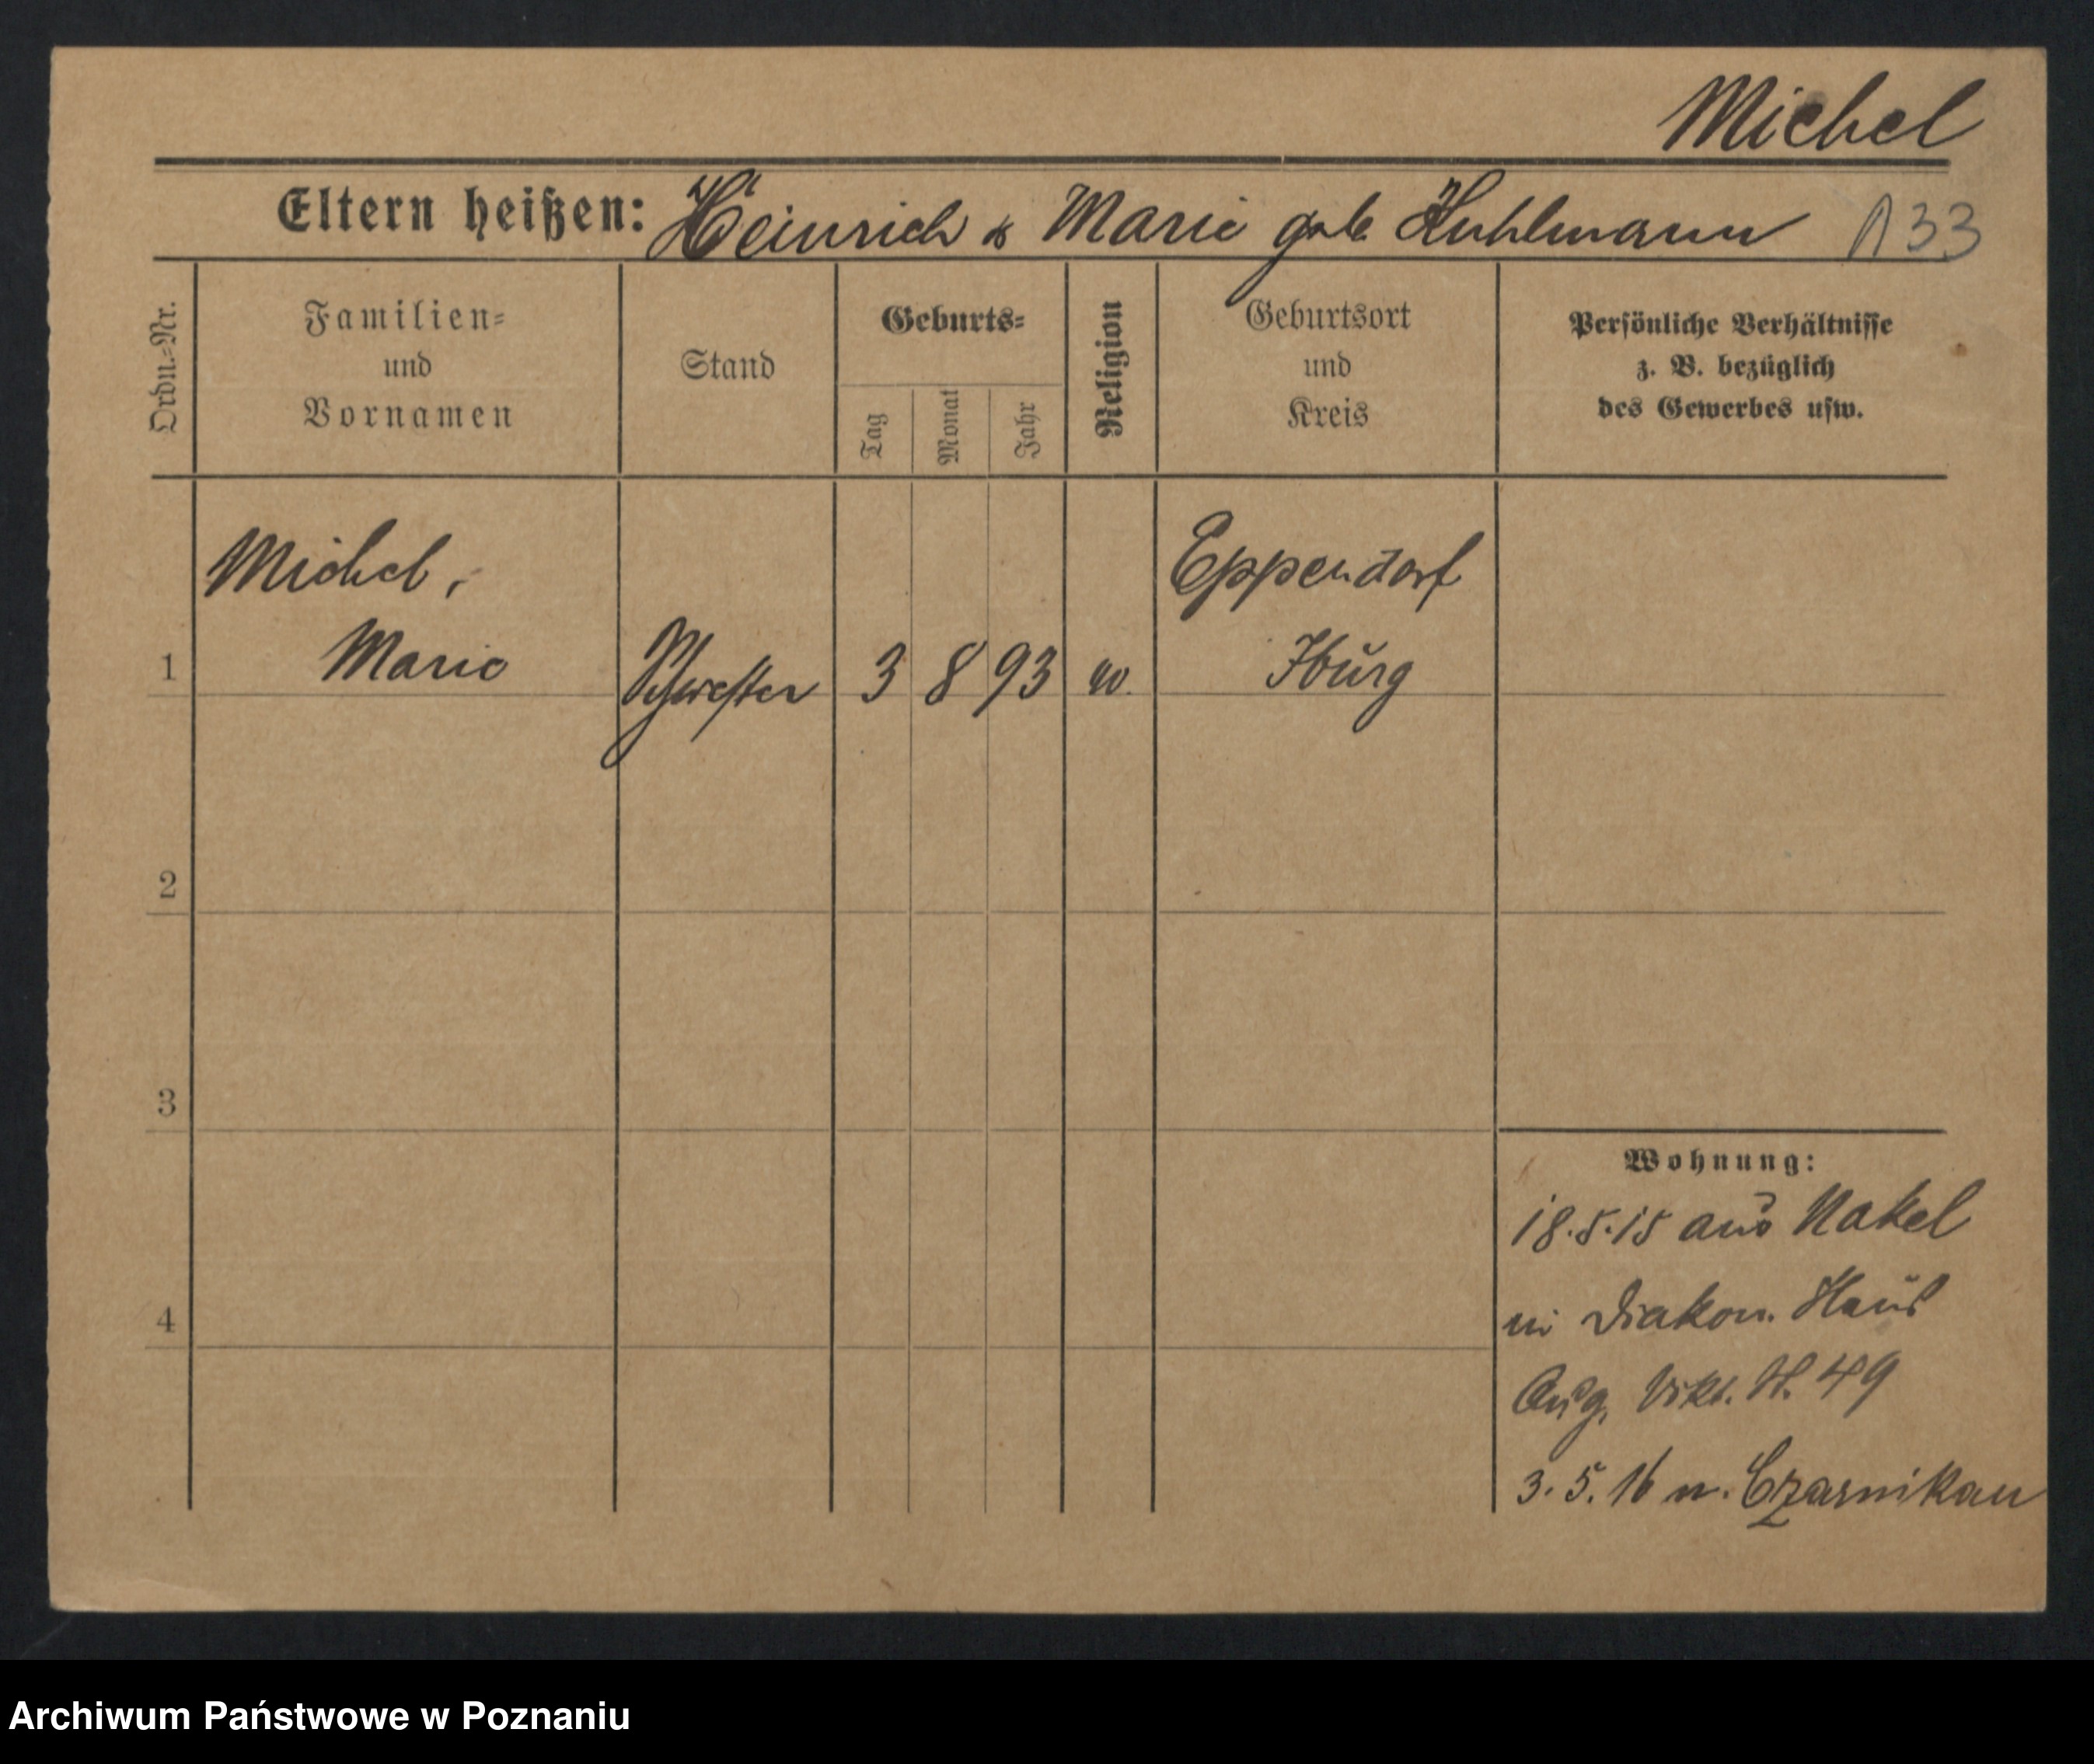 Michel
Eltern heißen: Heinrich & Marie geb Kuhlmann 133
Ordn.-Nr.
Familien-
und
Vornamen
Stand
Geburts-
Tag
Monat
Jahr
Religion
Geburtsort
und
Kreis
Persönliche Verhältnisse
z. B. bezüglich
des Gewerbes usw.
Michel,
Eppendorf
1 Marie Schwester 3 8 93 Iburg
2
3
4
Wohnung:
18.5.15 aus Nakel
in Diakon. Haus
Aug. Vikt. St. 49
3.5.16 n. Czarnikau
Archiwum Państwowe w Poznaniu